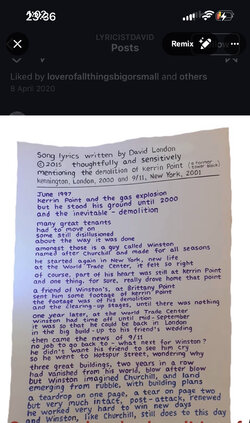 23:36
LYRICISTDAVID
Posts
Remix
Liked by loverofallthingsbigorsmall and others
8 April 2020
Song lyrics written by David London
© 2015 thoughtfully and sensitively
mentioning the demolition of Kerrin Point (a former tower block)
Kennington, London, 2000 and 9/11, New York, 2001
June 1997
Kerrin Point and the gas explosion
but he stood his ground until 2000
and the inevitable - demolition
many great tenants
had to move on
some still disillusioned
about the way it was done
amongst those is a guy called Winston
named after Churchill and made for all seasons
he started again in New York, new life
at the World Trade Center, it felt so right
of course, part of his heart was still at Kerrin Point
and one thing, for sure, really drove home that point
a friend of Winston's, at Brittany Point
sent him some footage of Kerrin Point
the footage was of his demolition
and the clearing up stages, until there was nothing
one year later, at the World Trade Center
Winston had time off until mid-September
it was so that he could be back in London
in the big build-up to his friend's wedding
then came the news of 9/11
no job to go back to - what next for Winston?
he didn't want his friend to see him cry
so he went to Hotspur Street, wondering why
three great buildings, two years in a row
had vanished from his world, blow after blow
but Winston imagined Churchill, and land
emerging from rubble, with building plans
a teardrop on one page, a tear on page two
but very much intact, post-attack, renewed
he worked very hard to win new days
and Winston, like Churchill, still does to this day